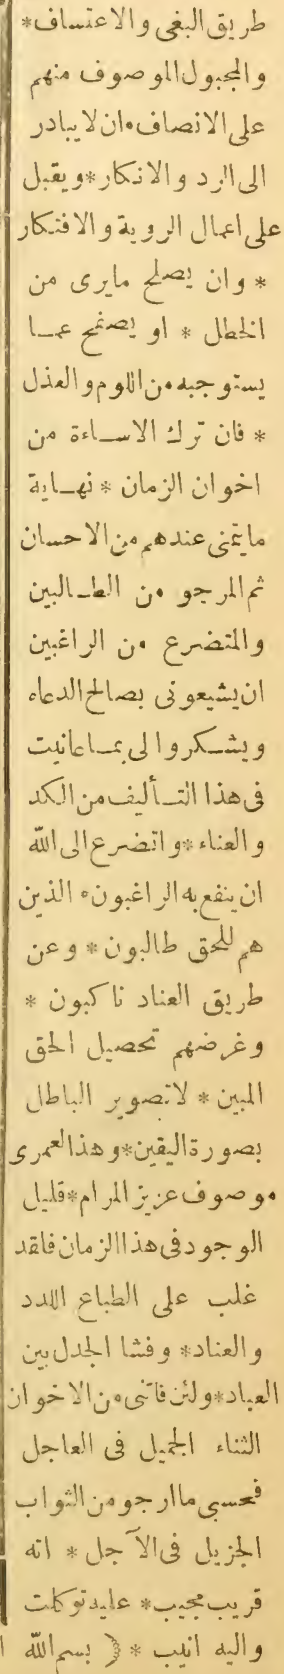 طريق البغى والاعتساف*
والمجبول الموصوف منهم
على الانصاف٭ان لايبادر
الى الرد والانكار*ويقبل
على اعمال الروية والافتكار
* وان يصلح مايرى من
الخطل * او يصفح عمـا
يستوجبه من اللوم والعذل
* فان ترك الاسـاءة من
اخوان الزمان * نهـاية
مايتمنى عندهم من الاحسان
ثم المرجو من الطـالبين
والمتضرع من الراغبين
ان يشيعونى بصالح الدعاء
ويشـكروا لى بمـاعانيت
فى هذا التـأليف من الكد
والعناء*واتضرع الى الله
ان ينفع به الراغبون٭ الذين
هم للحق طالبون * وعن
طريق العناد ناكبون *
وغرضهم تحصيل الحق
المبين * لاتصوير الباطل
بصورة اليقين*وهذا لعمرى
موصوف عزيز المرام*قليل
الوجود فى هذا الزمان فلقد
غلب على الطباع اللدد
والعناد* وفشا الجدل بين
العباد*ولئن فاتنى من الاخوان
الثناء الجميل فى العاجل
فحسبى ماارجو من الثواب
الجزيل فى الآجل * انه
قريب مجيب* عليه توكلت
واليه انيب * ﴿ بسم الله